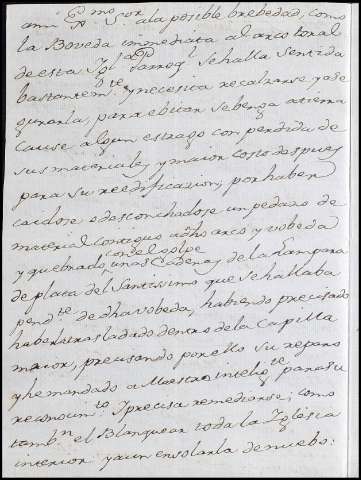 ami Ex.mo S.or a la posible brebedad, como
la Boveda immediata al arco toral
de esta Igl.a Parroq.l se halla sentida
bastantem.te y necesita recalzarse y ase
gurarla, para ebitar se benga a tierra
Cause algun estrago con perdida de
sus materiales, y maior costo despues
para su reedificazion; por haber
caidose, o desconchadose un pedazo de
material contiguo a dho arco y vobeda
y quebrado, con el golpe unas Cadenas de la Lampara
de plata del Santissimo que se hallaba
pend.te de dha vobeda, habiendo precisado
haberla trasladado dentro de la Capilla
maior, precisando por ello su reparo
y he mandado a Maestro intelig.te para su
reconocim.to I precisa remediarse; como
tamb.n el Blanquear toda la Iglesia
interior y aun ensolarla de nuebo: